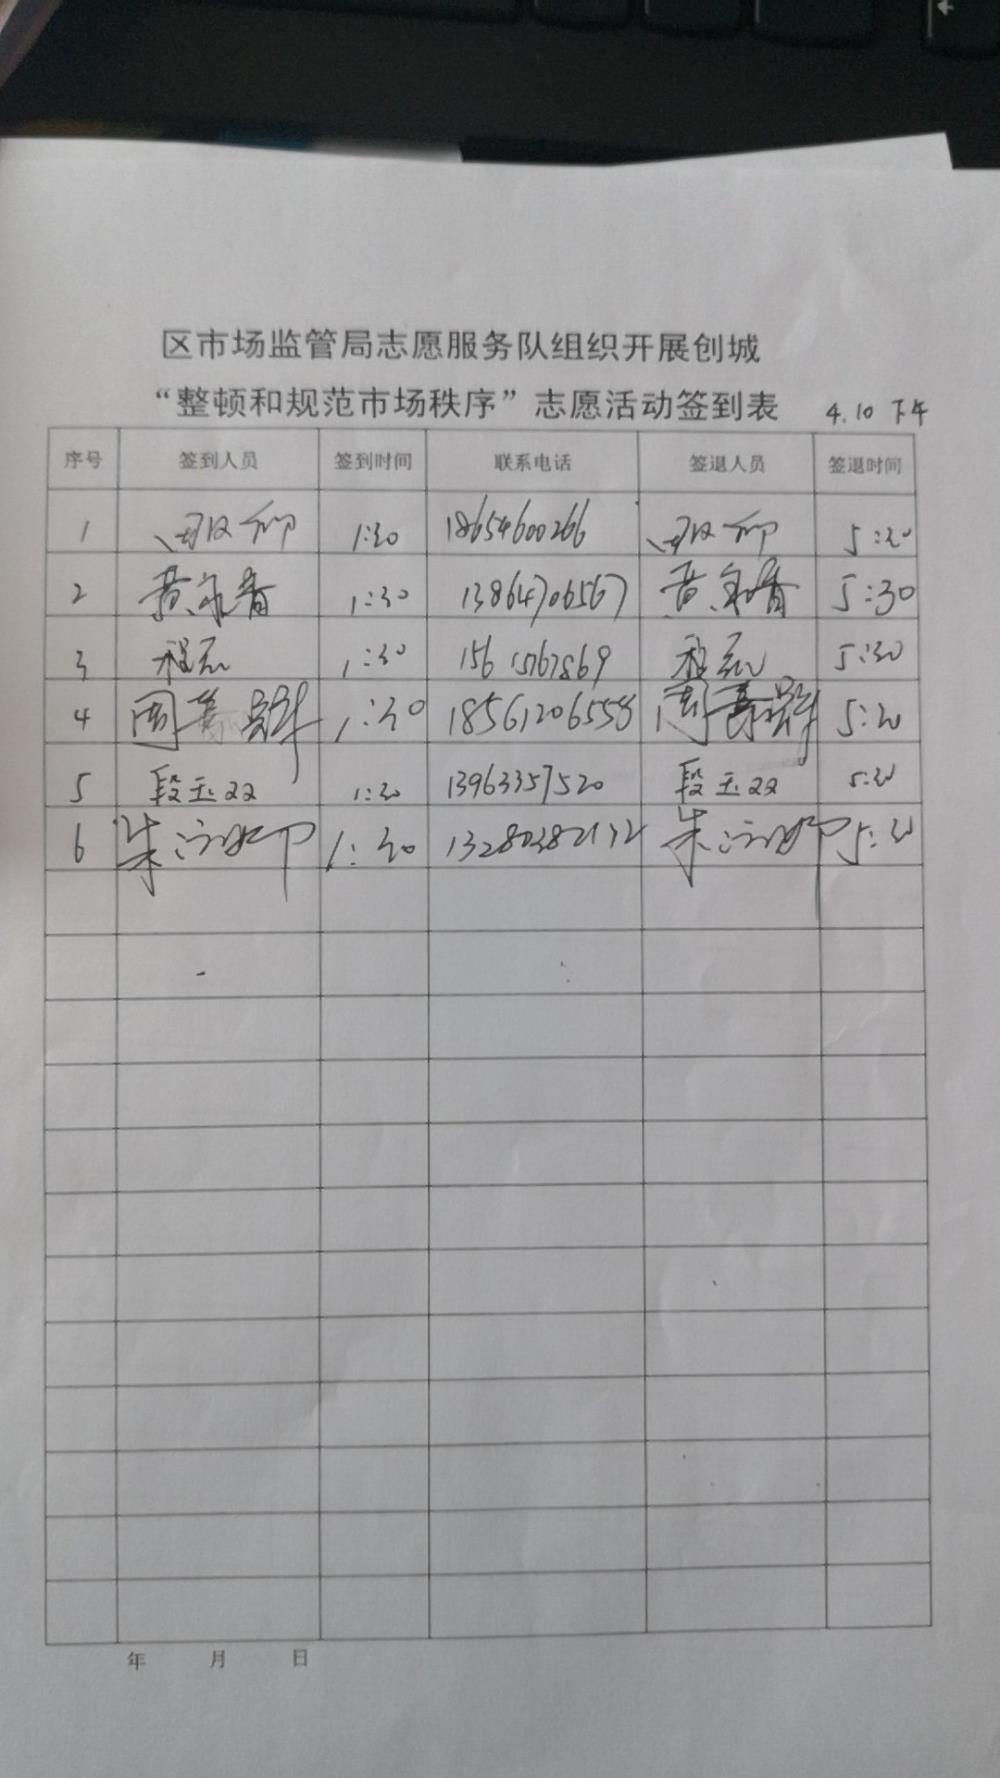 区市场监管局志愿服务队组织开展创城
“整顿和规范市场秩序”志愿活动签到表 4.10 下午
序号 签到人员 签到时间 联系电话 签退人员 签退时间
1 1:30 18654600266 5:30
2 黄永香 1:30 13864706567 黄永香 5:30
3 程元 1:30 15615767869 程元 5:30
4 周 1:30 18561206558 周 5:30
5 段玉双 1:30 13963357520 段玉双 5:30
6 朱 1:30 13280382172 朱 5:30
年 月 日